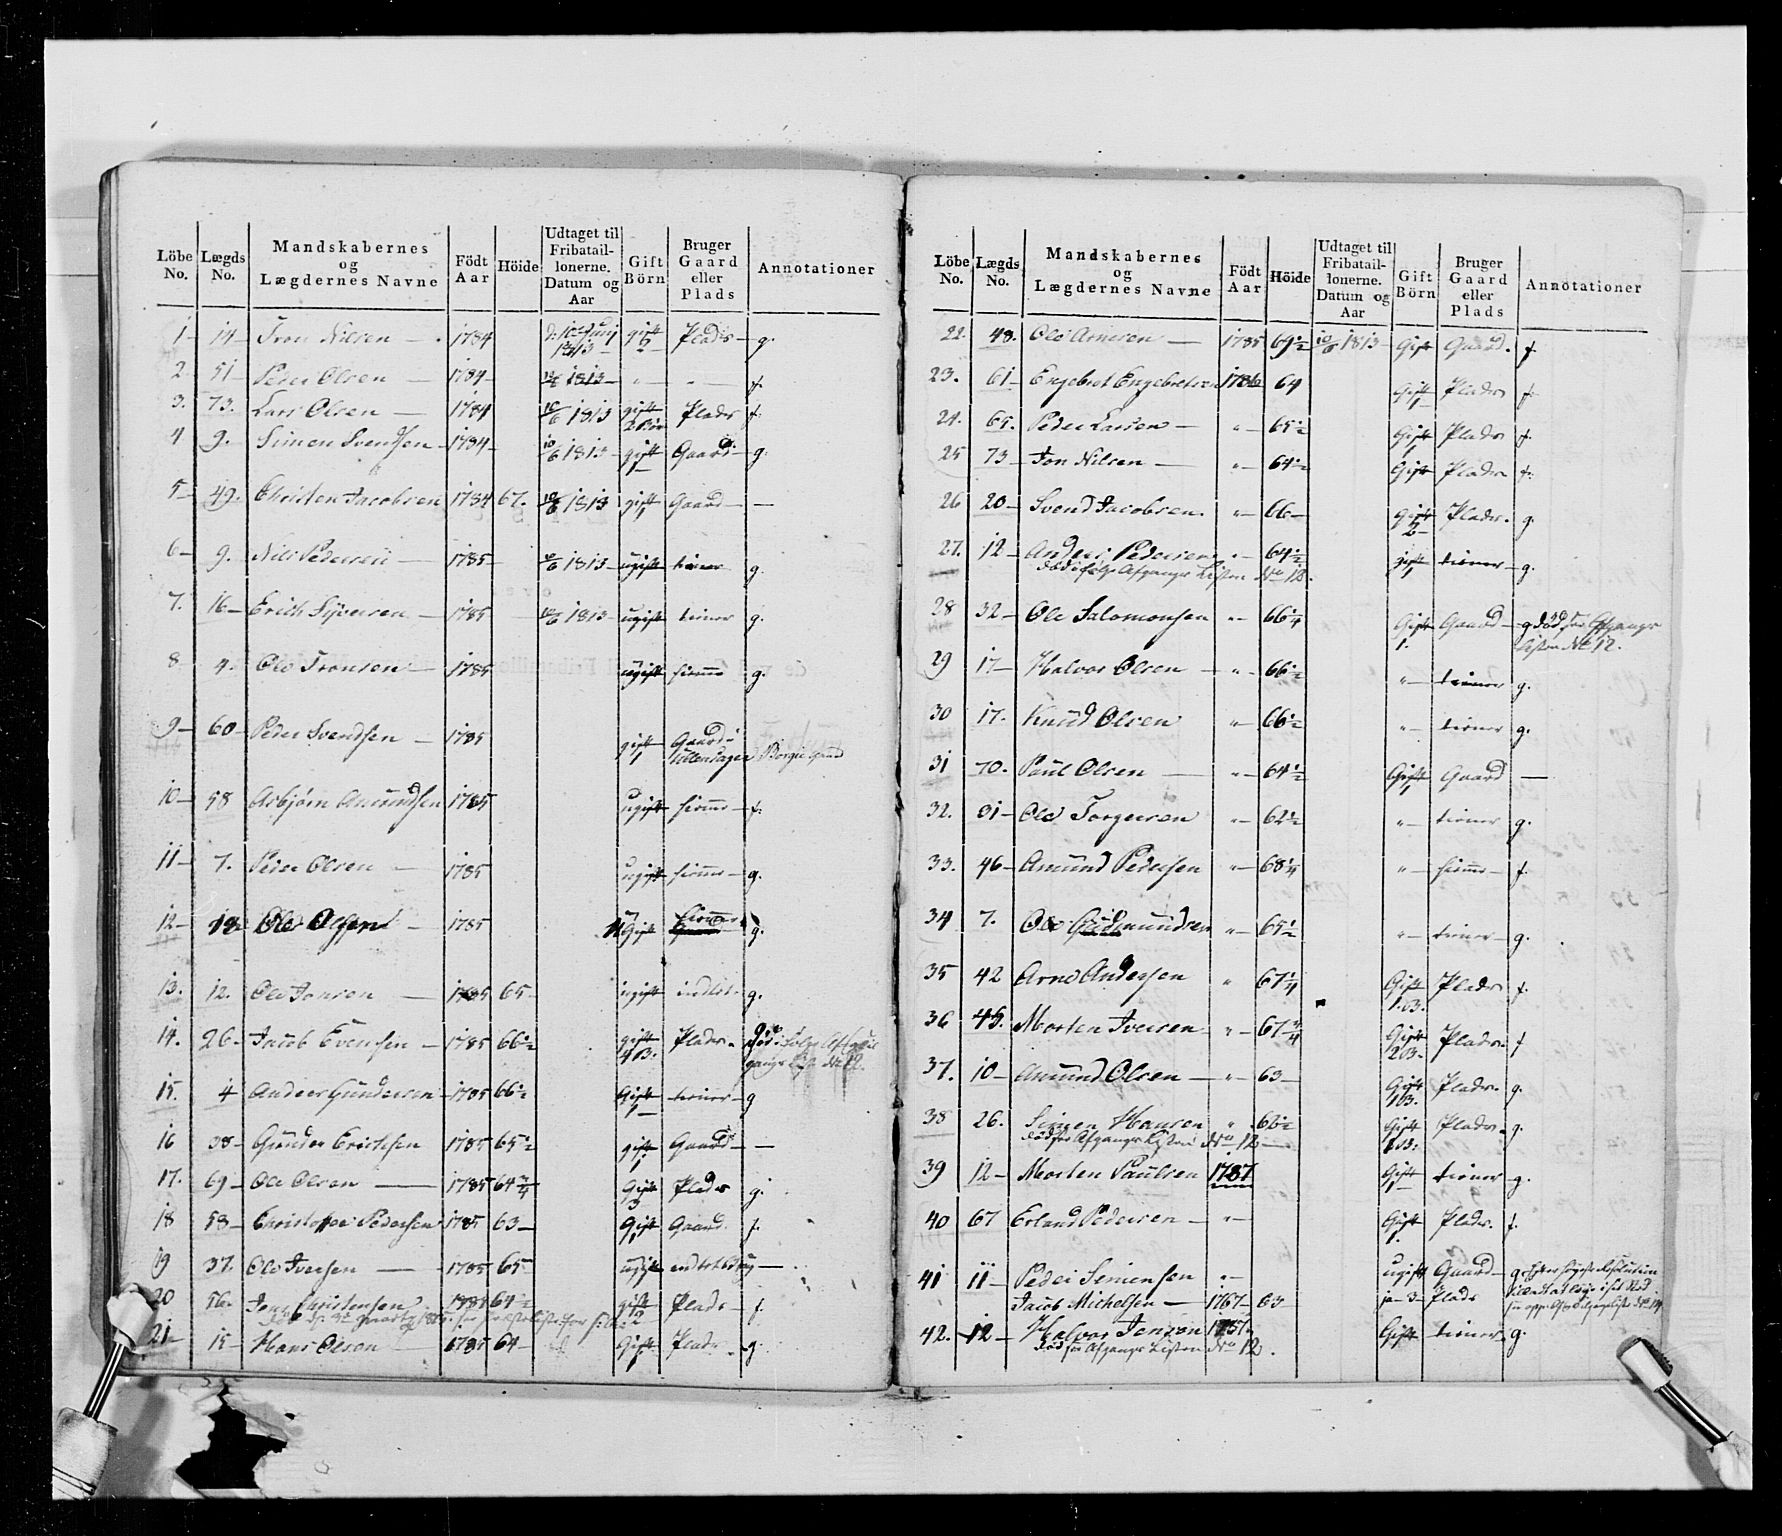 Löbe No. Lægds No. Mandskabernes og Lægdernes Navne Födt Aar Höide Udtaget til Fribatail-lonerne. Datum og Aar Gift Börn Bruger Gaard eller Plads Annotationer
1 14 Tron Nilsen 1784 1813 gift Plads g.
2. 51 Peder Olsen 1784 10/6 1813 f.
3. 73. Lars Olsen 1784 10/6 1813 gift Plads f.
4 9. Simen Svendsen 1784 10/6 1813 gift 1 Gaard g.
5 49. Christen Jacobsen 1784 67. 10/6 1813 gift 1 Gaard —
6 9. Nils Pedersen 1785 10/6 1813 ugift tiener g.
7. 16 Erich Syversen 1785 10/6 1813 ugift tiener g.
8 4. Ole Tronsen 1785 ugift hiemme g.
9 60 Peder Svendsen 1785 gift 1 Gaard i Ullensager
10 58 Asbjørn Amundsen 1785 ugift hiemme f.
11 7. Peder Olsen 1785 ugift hiemme g.
12 Ole Olsen 1785 ugift hiemme g.
13. 12. Ole Jonsen 1785 65 ugift g.
14. 26 Jacob Evensen 1785 66½ gift Plads Død
15. 4 Anders Gundersen 1785 66½ Gift 1 tiener g
16 38 Gunder Erichsen 1785 65½ gift 1 Gaard —
17. 69 Ole Olsen 1785 64¾ Gift 3 Plads g.
18 58 Christoffer Pedersen 1785 63 Gift 1 Gaard f.
19 37. Ole Iversen 1785 65 ugift
20 56. Jens Christensen 1785 64½ gift 2 Plads f.
21 15 Hans Olsen 1785 64 Gift 1 Plads g.
Löbe No. Lægds No. Mandskabernes og Lægdernes Navne Födt Aar Höide Udtaget til Fribatail-lonerne. Datum og Aar Gift Börn Bruger Gaard eller Plads Annotationer
22. 48. Ole Arnesen 1785 69½ 10/6 1813 Gift Gaard. f.
23. 61 Engebret Engebretsen 1786 64 Gift 1 Plads f.
24. 65. Peder Larsen " 65½ Gift 1 Plads f.
25 73 Jon Nilsen " 64½ Gift Plads f.
26 20 Svend Jacobsen " 66 Gift 2 Plads. g.
27. 12 Anders Pedersen " 64½ gift 1 tiener g.
død ifølge Afgangs Listen No 12.
28 32 Ole Salomonsen " 66¼ Gift 1. Gaard g død før Afgangs Listen No 12.
29 17 Halvor Olsen 66½ " tiener g.
30 17. Knud Olsen " 66½ " tiener g.
31 70. Paul Olsen " 64½ Gift 1 Gaard —
32. Ole Torgersen " 62½ " tiener g.
33. 46 Amund Pedersen " 68¼ " hiemme f.
34 7. Ole Gudmundsen " 65½ " tiener g.
35 42 Arne Andersen " 67¼ Gift 1.B. Plads f.
36 45. Morten Iversen " 67¾ Gift 2B. Plads f
37. 10 Amund Olsen " 63 Gift 1B. Plads. g.
38 26. Simen Hansen " 66½ Gift Plads. g.
død før Afgangs Listen No 12
39 12 Morten Paulsen 1787 Gift 1 tiener g.
40 67 Erland Pedersen " Gift 1 Plads. f.
41 11 Peder Simensen " ugift Gaard g.
Jacob Michelsen 1767 63 ja 3 Plads
42. 12 Halvor Jensen Gift tiener g.
død før Afgangs Listen No 12.